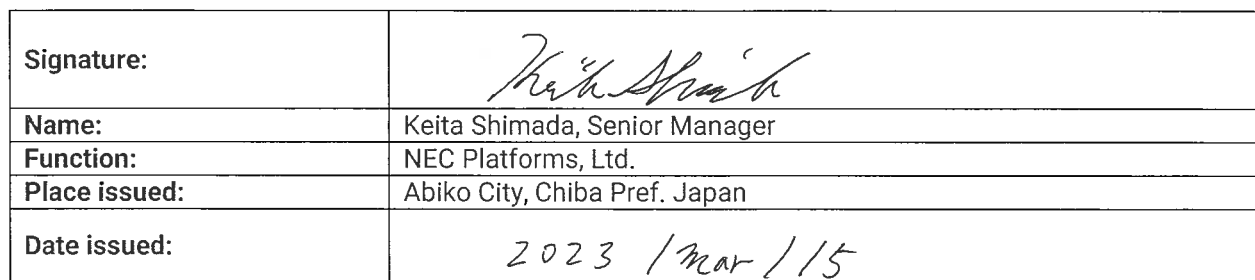 Signature:
Name: Keita Shimada, Senior Manager
Function: NEC Platforms, Ltd.
Place issued: Abiko City, Chiba Pref. Japan
Date issued: 2023 / Mar / 15